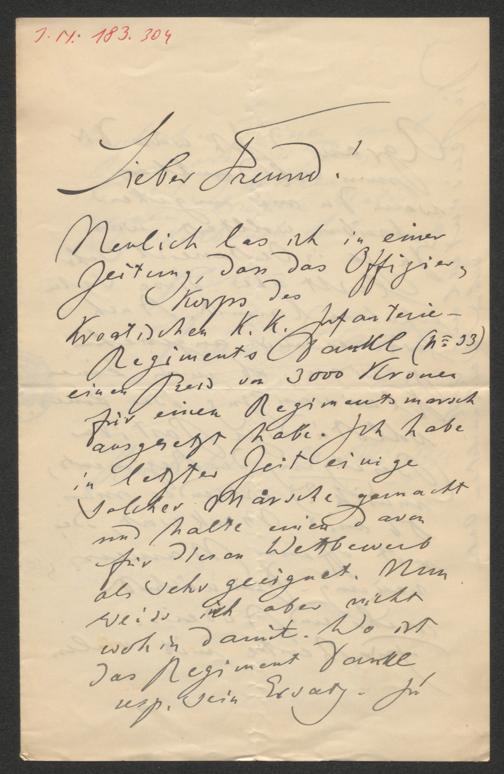 I.N. 183.304
Lieber Freund!
Neulich las ich in einer
Zeitung, dass das Offizier-
Korps des
Kroatischen K.K. Infanterie-
Regiments Dankl (No 53)
einen Preis von 3000 Kronen
für einen Regimentsmarsch
ausgesetzt habe. Ich habe
in letzter Zeit einige
solcher Märsche gemacht
und halte einen davon
für diesen Wettbewerb
als sehr geeignet. Nun
weiss ich aber nicht
wohin damit. Wo ist
das Regiment Dankl
resp. sein Ersatz-